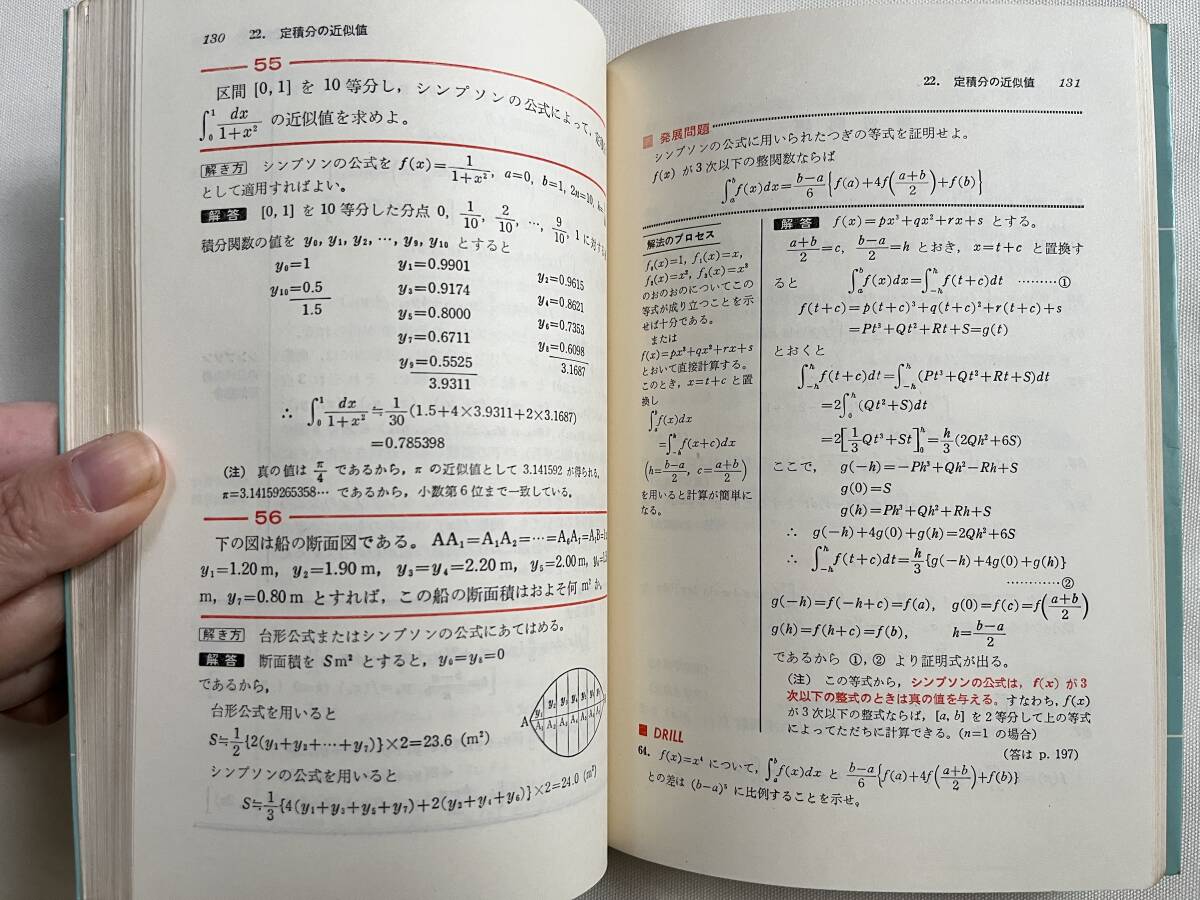 130 22. 定積分の近似値
55
区間 [0, 1] を 10 等分し, シンプソンの公式によって,
∫₀¹ dx/(1+x²) の近似値を求めよ。
解き方 シンプソンの公式を f(x)=1/(1+x²), a=0, b=1, 2n=10,
として適用すればよい。
解答 [0, 1] を 10 等分した分点 0, 1/10, 2/10, …, 9/10, 1 に対する
積分関数の値を y₀, y₁, y₂, …, y₉, y₁₀ とすると
y₀=1 y₁=0.9901 y₂=0.9615
y₁₀=0.5 y₃=0.9174 y₄=0.8621
1.5 y₅=0.8000 y₆=0.7353
y₇=0.6711 y₈=0.6098
y₉=0.5525 3.1687
3.9311
∴ ∫₀¹ dx/(1+x²) ≒ 1/30 (1.5+4×3.9311+2×3.1687)
=0.785398
(注) 真の値は π/4 であるから, π の近似値として 3.141592 が得られる。
π=3.14159265358… であるから, 小数第 6 位まで一致している。
56
下の図は船の断面図である。 AA₁=A₁A₂=…=A₆A₇=A₇B=
y₁=1.20 m, y₂=1.90 m, y₃=y₄=2.20 m, y₅=2.00 m,
m, y₇=0.80 m とすれば, この船の断面積はおよそ何 m² か。
解き方 台形公式またはシンプソンの公式にあてはめる。
解答 断面積を S m² とすると, y₀=y₈=0
であるから,
台形公式を用いると
S≒1/2{2(y₁+y₂+…+y₇)}×2=23.6 (m²)
シンプソンの公式を用いると
S≒1/3{4(y₁+y₃+y₅+y₇)+2(y₂+y₄+y₆)}×2=24.0 (m²)
A
y₁ y₂ y₃ y₄ y₅ y₆
A₁ A₂ A₃ A₄ A₅ A₆
22. 定積分の近似値 131
発展問題
シンプソンの公式に用いられたつぎの等式を証明せよ。
f(x) が 3 次以下の整関数ならば
∫ₐᵇ f(x)dx=(b−a)/6 {f(a)+4f((a+b)/2)+f(b)}
解法のプロセス
f₀(x)=1, f₁(x)=x,
f₂(x)=x², f₃(x)=x³
のおのおのについてこの
等式が成り立つことを示
せば十分である。
または
f(x)=px³+qx²+rx+s
とおいて直接計算する。
このとき, x=t+c と置
換し
∫ₐᵇ f(x)dx
=∫₋ₕʰ f(x+c)dx
(h=(b−a)/2, c=(a+b)/2)
を用いると計算が簡単に
なる。
解答 f(x)=px³+qx²+rx+s とする。
(a+b)/2=c, (b−a)/2=h とおき, x=t+c と置換す
ると ∫ₐᵇ f(x)dx=∫₋ₕʰ f(t+c)dt ………①
f(t+c)=p(t+c)³+q(t+c)²+r(t+c)+s
=Pt³+Qt²+Rt+S=g(t)
とおくと
∫₋ₕʰ f(t+c)dt=∫₋ₕʰ (Pt³+Qt²+Rt+S)dt
=2∫₀ʰ (Qt²+S)dt
=2[1/3 Qt³+St]₀ʰ=h/3 (2Qh²+6S)
ここで, g(−h)=−Ph³+Qh²−Rh+S
g(0)=S
g(h)=Ph³+Qh²+Rh+S
∴ g(−h)+4g(0)+g(h)=2Qh²+6S
∴ ∫₋ₕʰ f(t+c)dt=h/3 {g(−h)+4g(0)+g(h)}
…………②
g(−h)=f(−h+c)=f(a), g(0)=f(c)=f((a+b)/2)
g(h)=f(h+c)=f(b), h=(b−a)/2
であるから ①, ② より証明式が出る。
(注) この等式から, シンプソンの公式は, f(x) が 3
次以下の整式のときは真の値を与える。すなわち, f(x)
が 3 次以下の整式ならば, [a, b] を 2 等分して上の等式
によってただちに計算できる。(n=1 の場合)
(答は p. 197)
DRILL
64. f(x)=x⁴ について, ∫ₐᵇ f(x)dx と (b−a)/6 {f(a)+4f((a+b)/2)+f(b)}
との差は (b−a)⁵ に比例することを示せ。